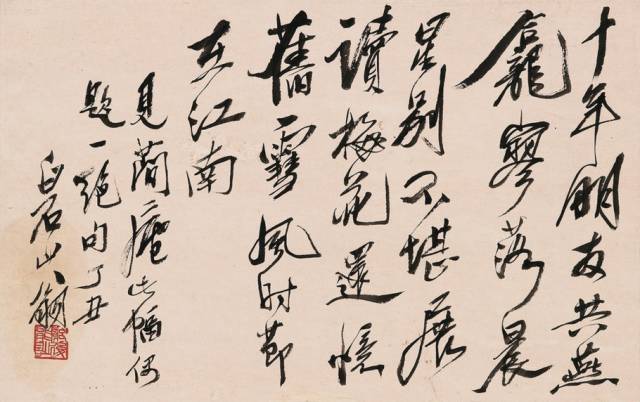 十年朋友共燕
龕寥落晨
星別不堪展
讀梅花還憶
舊雪風時節
在江南
見蕳庵此幅偶
題一絕句丁丑
白石山翁